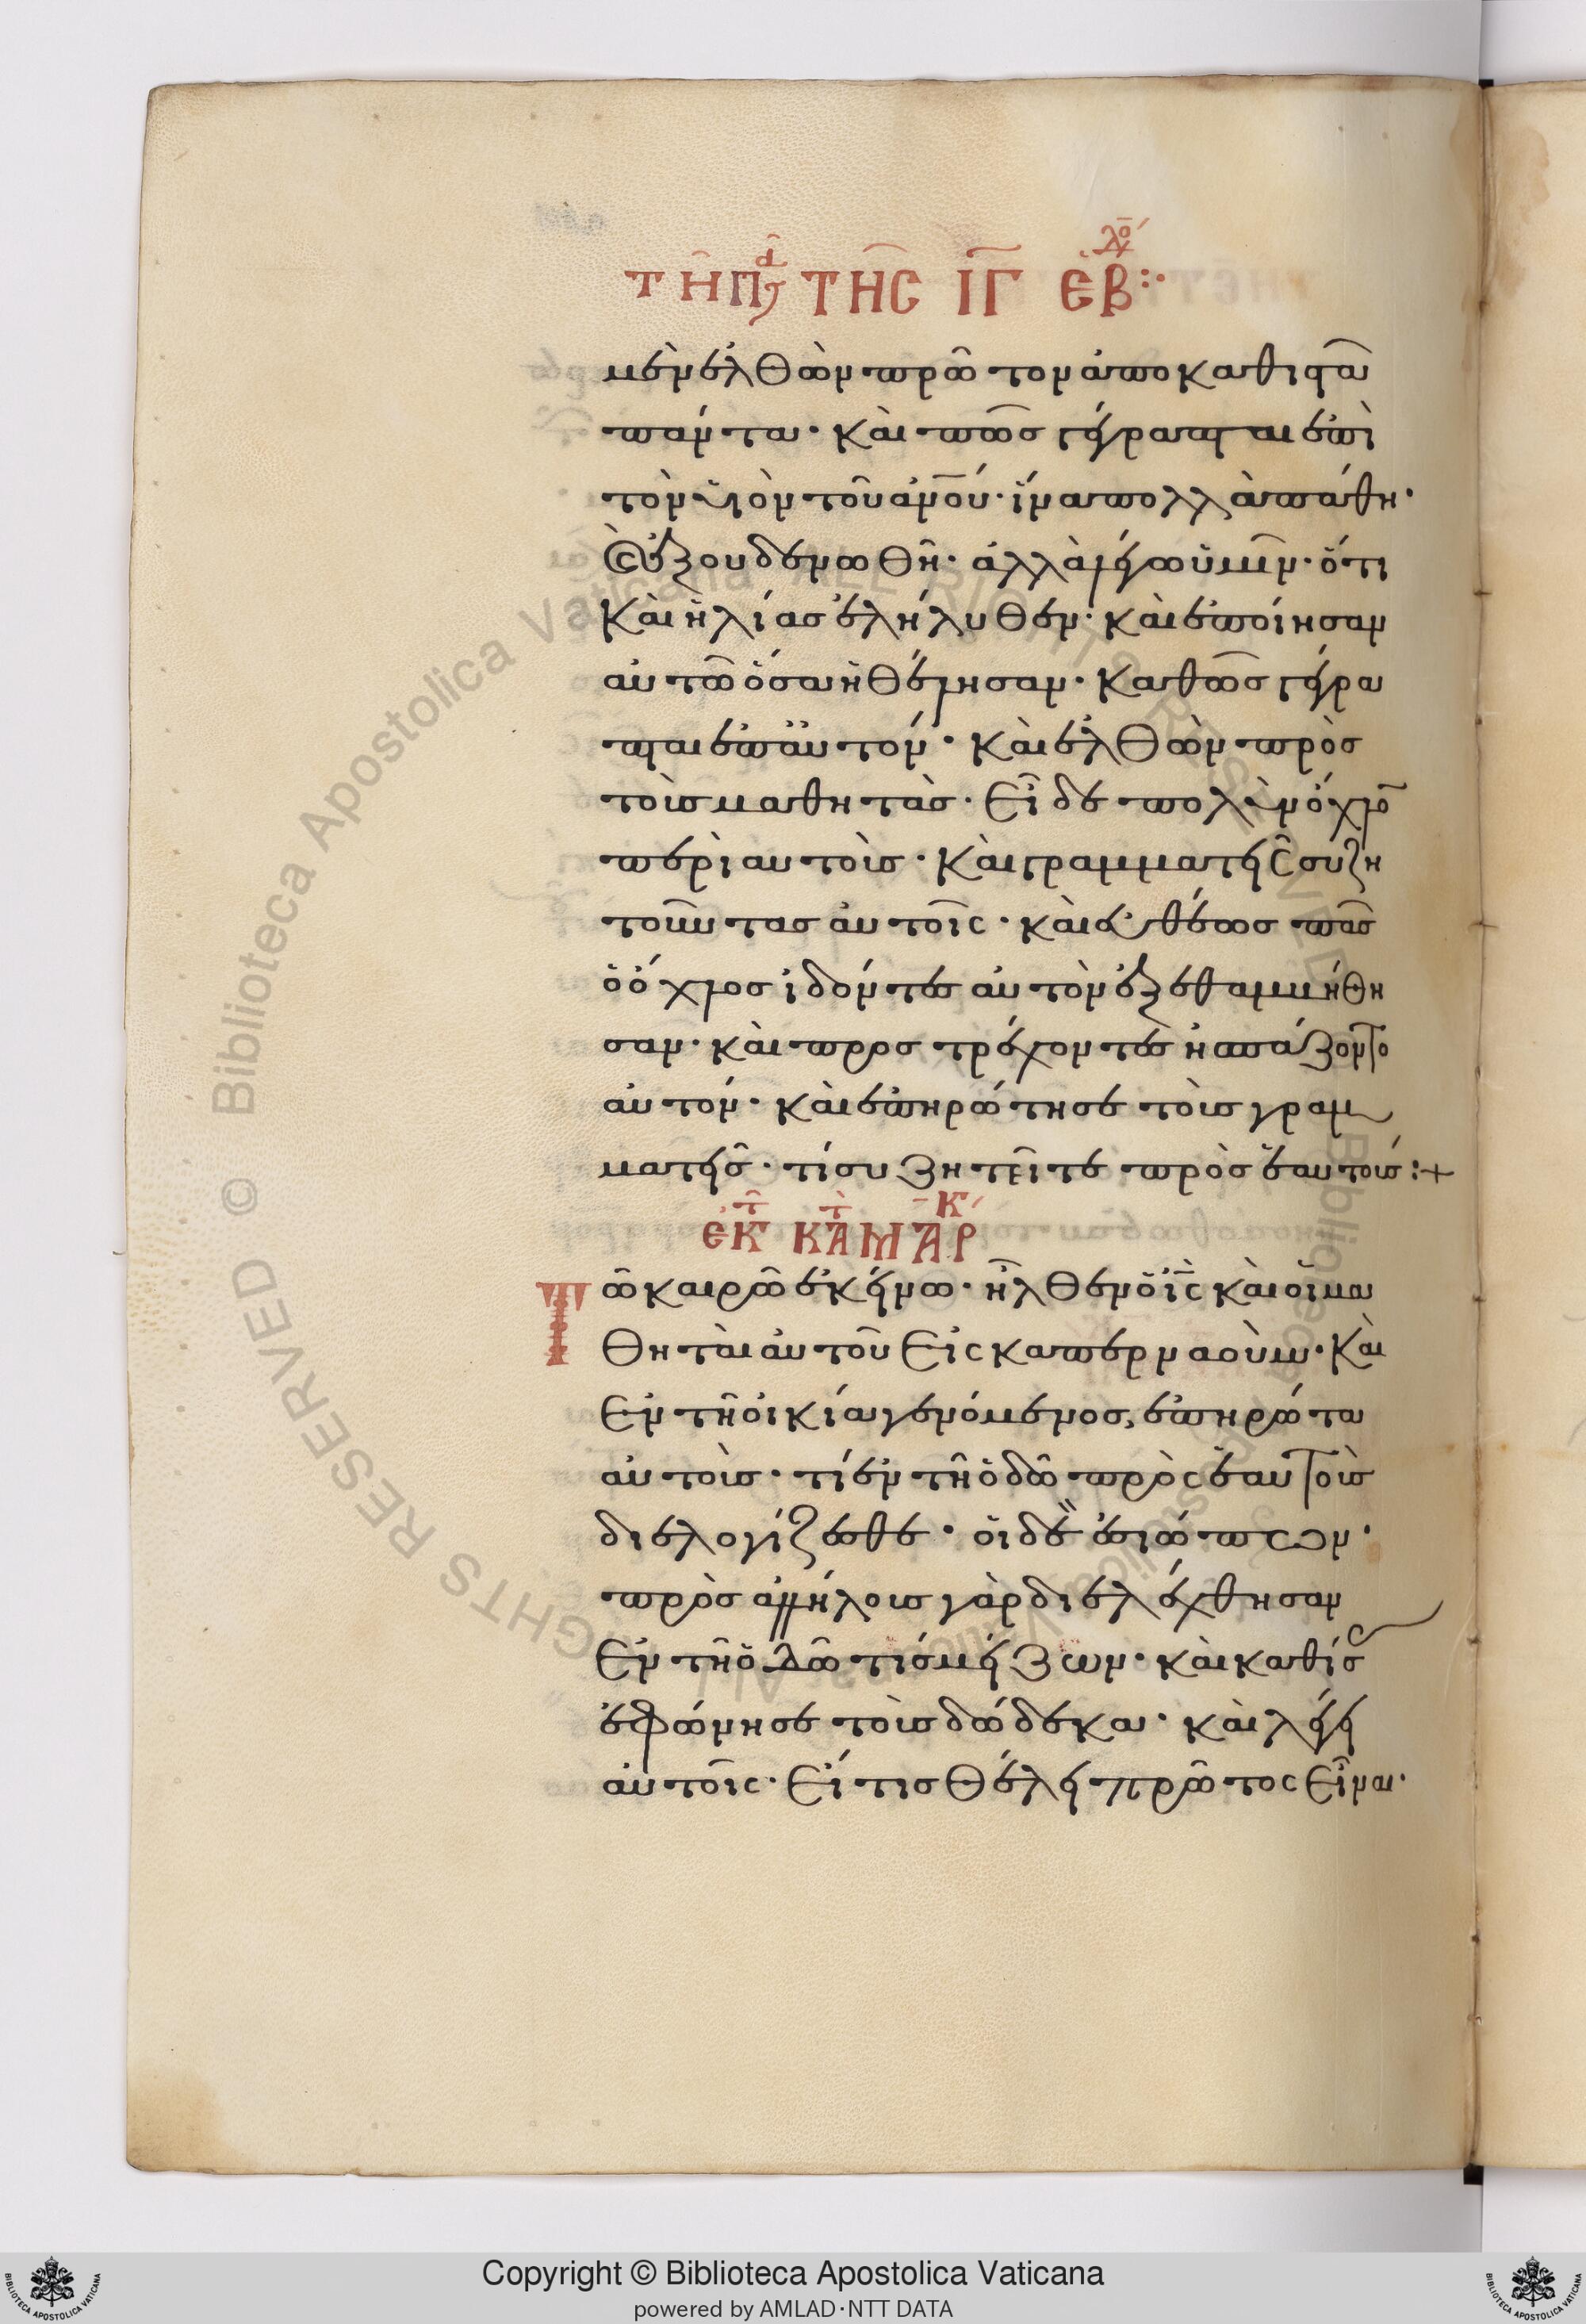 τῆ πα τῆς ιγ ἑβδο
μὲν ἐλθὼν πρῶτον ἀποκαθιστᾶ
πάντα· καὶ πῶς γέγραπται ἐπὶ
τὸν υἱὸν τοῦ ἀνου· ἵνα πολλὰ πάθη·
καὶ ἐξουδενωθῆ· ἀλλὰ λέγω ὑμῖν· ὅτι
καὶ ἠλίας ἐλήλυθεν· καὶ ἐποίησαν
αὐτῶ ὅσα ἠθέλησαν· καθὼς γέγρα
πται ἐπ' αὐτόν· καὶ ἐλθὼν πρὸς
τοὺς μαθητὰς· εἶδε πολὺν ὄχλο
περὶ αὐτοὺς· καὶ γραμματεῖς συζη
τοῦντας αὐτοῖς· καὶ εὐθέως πᾶς
ὁ ὄχλος ἰδόντες αὐτὸν ἐξεθαμβήθη
σαν· καὶ προστρέχοντες ἠσπάζοντο
αὐτόν· καὶ ἐπηρώτησε τοὺς γραμ
ματεῖς· τί συζητεῖτε πρὸς ἑαυτούς:+
ἐκ τ κατὰ μαρκ
Τῶ καιρῶ ἐκείνω· ἦλθεν ὁ ις καὶ οἱ μα
θηταὶ αὐτοῦ εἰς καπερναοὺμ· καὶ
ἐν τῆ οἰκία γενόμενος, ἐπηρώτα
αὐτοὺς· τί ἐν τῆ ὁδῶ πρὸς ἑαυτοὺς
διελογίζεσθε· οἱ δὲ ἐσιώπων·
πρὸς ἀλλήλους γὰρ διελέχθησαν
ἐν τῆ ὁδῶ τίς μείζων· καὶ καθίσ
ἐφώνησε τοὺς δώδεκα· καὶ λέγει
αὐτοῖς· εἴ τις θέλει πρῶτος εἶναι·
Copyright © Biblioteca Apostolica Vaticana
powered by AMLAD·NTT DATA